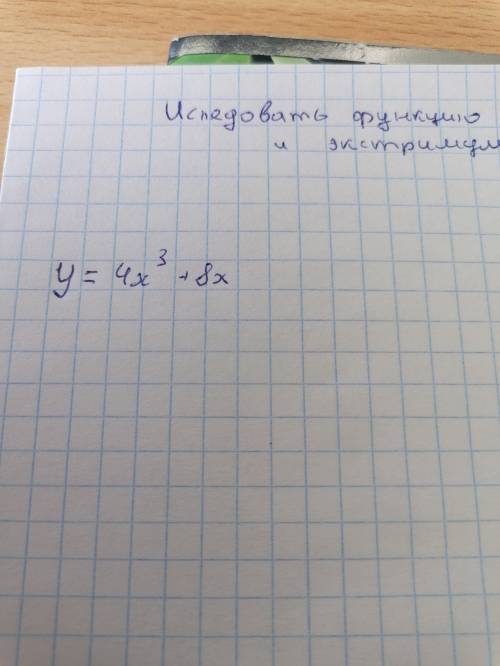 Иследовать функцию
и экстримум
y = 4x³ + 8x